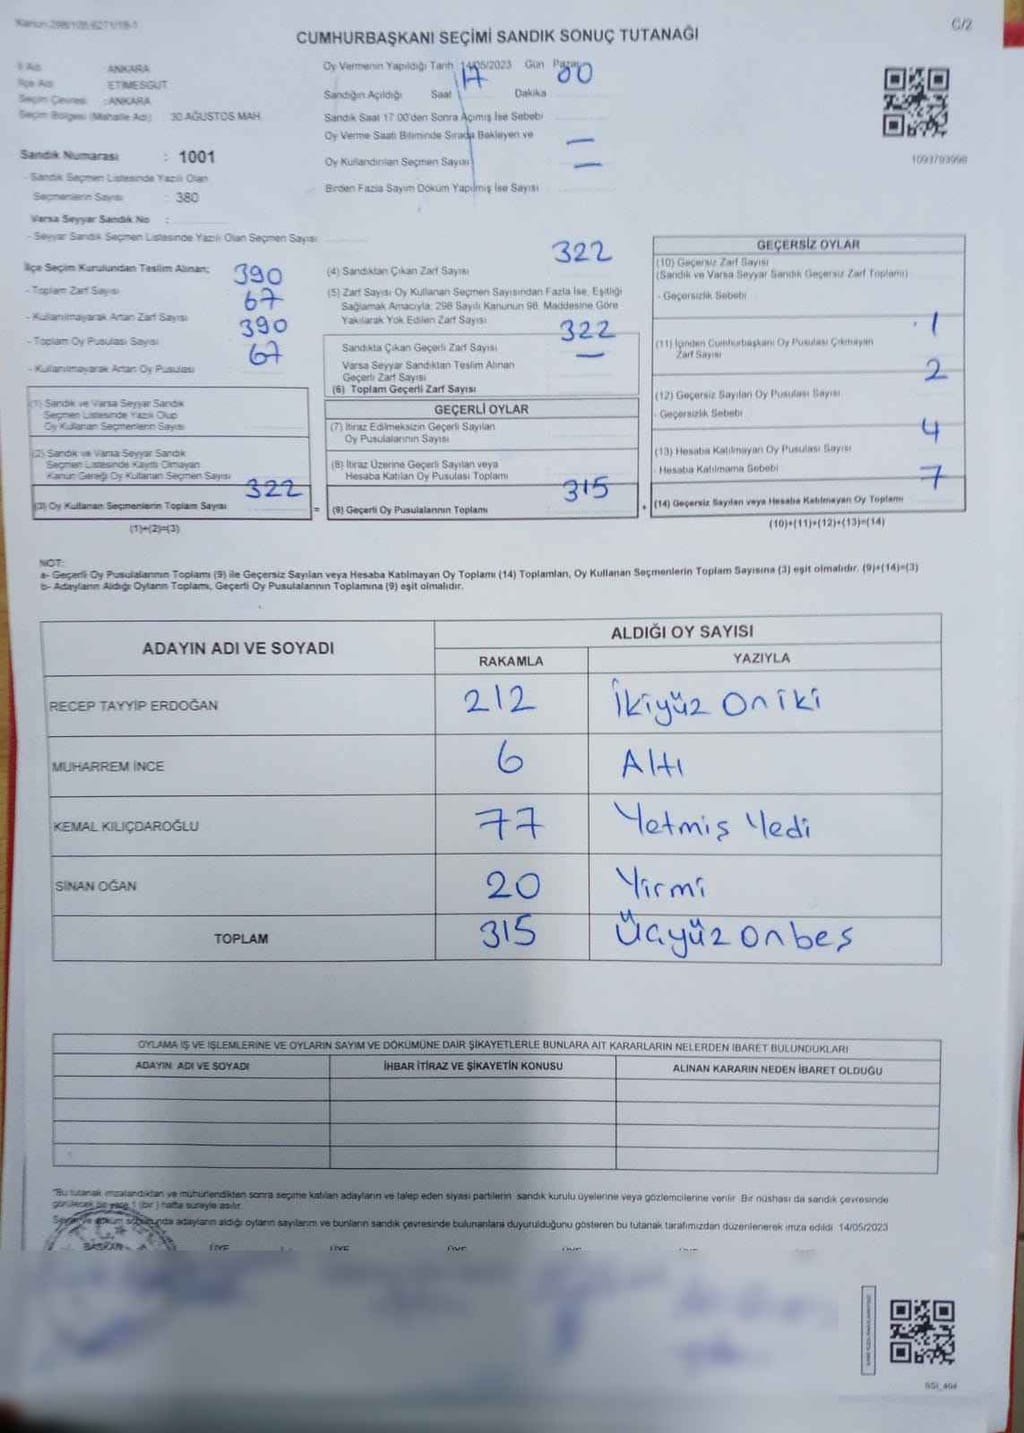 Kanun:298/105-6271/18-1
C/2
CUMHURBAŞKANI SEÇİMİ SANDIK SONUÇ TUTANAĞI
İl Adı : ANKARA
İlçe Adı : ETİMESGUT
Seçim Çevresi : ANKARA
Seçim Bölgesi (Mahalle Adı) : 30 AĞUSTOS MAH.
Sandık Numarası : 1001
- Sandık Seçmen Listesinde Yazılı Olan
Seçmenlerin Sayısı : 380
Varsa Seyyar Sandık No :
- Seyyar Sandık Seçmen Listesinde Yazılı Olan Seçmen Sayısı
Oy Vermenin Yapıldığı Tarih 14/05/2023 Gün Pazar
Sandığın Açıldığı Saat 17 Dakika 00
Sandık Saat 17.00'den Sonra Açımış İse Sebebi
Oy Verme Saati Bitiminde Sırada Bekleyen ve
Oy Kullandırılan Seçmen Sayısı —
Birden Fazla Sayım Döküm Yapılmış İse Sayısı —
1093793998
İlçe Seçim Kurulundan Teslim Alınan;
- Toplam Zarf Sayısı 390
- Kullanılmayarak Artan Zarf Sayısı 67
- Toplam Oy Pusulası Sayısı 390
- Kullanılmayarak Artan Oy Pusulası 67
(1) Sandık ve Varsa Seyyar Sandık
Seçmen Listesinde Yazılı Olup
Oy Kullanan Seçmenlerin Sayısı
(2) Sandık ve Varsa Seyyar Sandık
Seçmen Listesinde Kayıtlı Olmayan
Kanun Gereği Oy Kullanan Seçmen Sayısı
(3) Oy Kullanan Seçmenlerin Toplam Sayısı 322
(1)+(2)=(3)
(4) Sandıktan Çıkan Zarf Sayısı 322
(5) Zarf Sayısı Oy Kullanan Seçmen Sayısından Fazla İse, Eşitliği
Sağlamak Amacıyla; 298 Sayılı Kanunun 98. Maddesine Göre
Yakılarak Yok Edilen Zarf Sayısı
Sandıkta Çıkan Geçerli Zarf Sayısı 322
Varsa Seyyar Sandıktan Teslim Alınan
Geçerli Zarf Sayısı —
(6) Toplam Geçerli Zarf Sayısı
GEÇERLİ OYLAR
(7) İtiraz Edilmeksizin Geçerli Sayılan
Oy Pusulalarının Sayısı
(8) İtiraz Üzerine Geçerli Sayılan veya
Hesaba Katılan Oy Pusulası Toplamı
= (9) Geçerli Oy Pusulalarının Toplamı 315 +
GEÇERSİZ OYLAR
(10) Geçersiz Zarf Sayısı
(Sandık ve Varsa Seyyar Sandık Geçersiz Zarf Toplamı)
- Geçersizlik Sebebi
1
(11) İçinden Cumhurbaşkanı Oy Pusulası Çıkmayan
Zarf Sayısı
2
(12) Geçersiz Sayılan Oy Pusulası Sayısı
- Geçersizlik Sebebi
4
(13) Hesaba Katılmayan Oy Pusulası Sayısı
- Hesaba Katılmama Sebebi
7
(14) Geçersiz Sayılan veya Hesaba Katılmayan Oy Toplamı
(10)+(11)+(12)+(13)=(14)
NOT:
a- Geçerli Oy Pusulalarının Toplamı (9) ile Geçersiz Sayılan veya Hesaba Katılmayan Oy Toplamı (14) Toplamları, Oy Kullanan Seçmenlerin Toplam Sayısına (3) eşit olmalıdır. (9)+(14)=(3)
b- Adayların Aldığı Oyların Toplamı, Geçerli Oy Pusulalarının Toplamına (9) eşit olmalıdır.
ADAYIN ADI VE SOYADI ALDIĞI OY SAYISI
RAKAMLA YAZIYLA
RECEP TAYYİP ERDOĞAN 212 İkiyüz Oniki
MUHARREM İNCE 6 Altı
KEMAL KILIÇDAROĞLU 77 Yetmiş Yedi
SİNAN OĞAN 20 Yirmi
TOPLAM 315 Üçyüz onbeş
OYLAMA İŞ VE İŞLEMLERİNE VE OYLARIN SAYIM VE DÖKÜMÜNE DAİR ŞİKAYETLERLE BUNLARA AİT KARARLARIN NELERDEN İBARET BULUNDUKLARI
ADAYIN ADI VE SOYADI İHBAR İTİRAZ VE ŞİKAYETİN KONUSU ALINAN KARARIN NEDEN İBARET OLDUĞU
*Bu tutanak imzalandıktan ve mühürlendikten sonra seçime katılan adayların ve talep eden siyasi partilerin sandık kurulu üyelerine veya gözlemcilerine verilir. Bir nüshası da sandık çevresinde
görülecek bir yere 1 (bir) hafta süreyle asılır.
Sayım ve döküm sonucunda adayların aldığı oyların sayılarını ve bunların sandık çevresinde bulunanlara duyurulduğunu gösteren bu tutanak tarafımızdan düzenlenerek imza edildi. 14/05/2023
BAŞKAN ÜYE ÜYE ÜYE